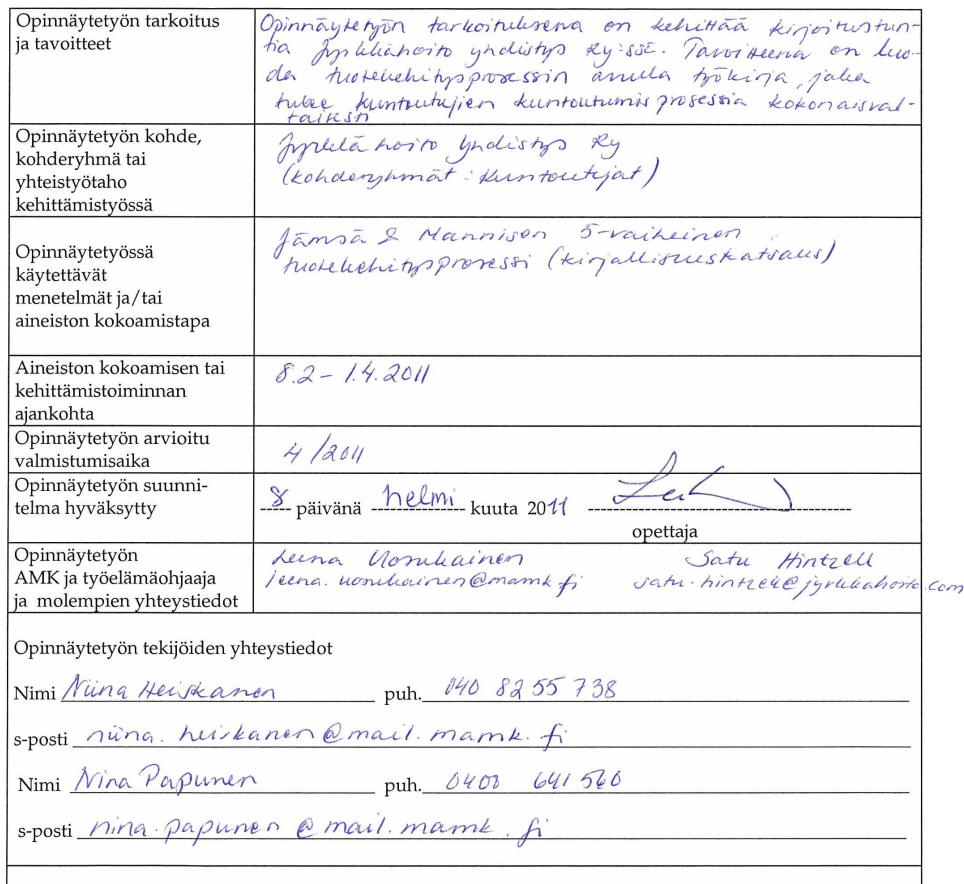 Opinnäytetyön tarkoitus
ja tavoitteet
Opinnäytetyön tarkoituksena on kehittää kirjoitustun-
tia Jyrkkähoito yhdistys Ry:ssä. Tavoitteena on luo-
da tuotekehitysprosessin avulla työkirja, joka
tukee kuntoutujien kuntoutumisprosessia kokonaisval-
taisesti
Opinnäytetyön kohde,
kohderyhmä tai
yhteistyötaho
kehittämistyössä
Jyrkkähoito yhdistys Ry
(kohderyhmät: kuntoutujat)
Opinnäytetyössä
käytettävät
menetelmät ja/tai
aineiston kokoamistapa
Jämsä & Mannisen 5-vaiheinen
tuotekehitysprosessi (kirjallisuuskatsaus)
Aineiston kokoamisen tai
kehittämistoiminnan
ajankohta
8.2 - 1.4.2011
Opinnäytetyön arvioitu
valmistumisaika
4/2011
Opinnäytetyön suunni-
telma hyväksytty
8 päivänä helmi kuuta 2011
opettaja
Opinnäytetyön
AMK ja työelämäohjaaja
ja molempien yhteystiedot
Leena Uosukainen Satu Hintzell
leena.uosukainen@mamk.fi satu.hintzell@jyrkkahoito.com
Opinnäytetyön tekijöiden yhteystiedot
Nimi Niina Heiskanen puh. 040 8255 738
s-posti niina.heiskanen@mail.mamk.fi
Nimi Nina Papunen puh. 0400 641 560
s-posti nina.papunen@mail.mamk.fi